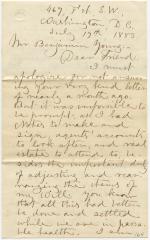 467 F st S.W.
Washington D.C.
July 17th 1883
Mr. Benjamin Young:
Dear Friend
I must
apologize for not answer-
ing your very kind letter
of nearly a month ago.
But it was impossible to
be prompt, as I had
notes to make and
sign, agents accounts
to look after, and real
estate to attend to, be-
sides the important duty
of adjusting and rear-
ranging the items of
my Will. You know
that all this had better
be done and settled
while we are in passa-
ble health. I also